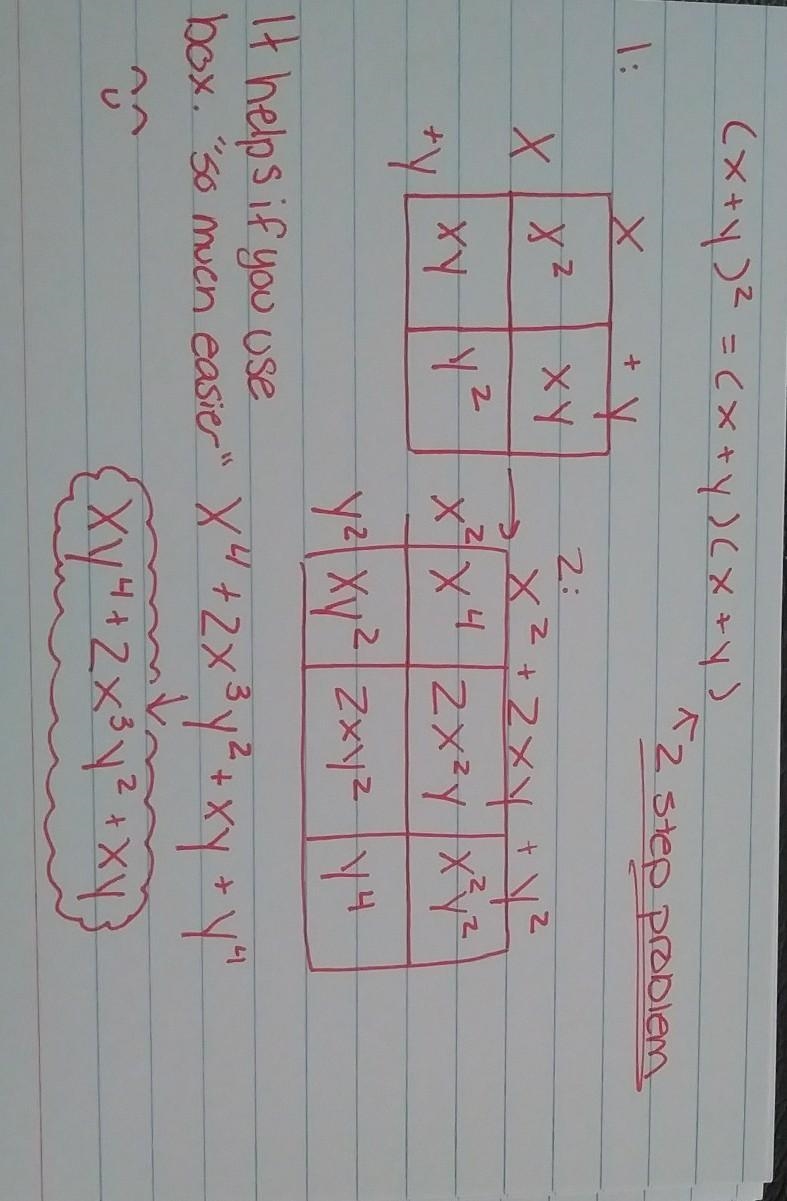 (x+y)² = (x+y)(x+y)
↑2 step problem
1:
x +y
x x² xy
+y xy y²
→
2:
x² + 2xy + y²
x² x⁴ 2x²y x²y²
y² xy² 2xy² y⁴
It helps if you use
box. "so much easier"
x⁴ + 2x³y² + xy + y⁴
↓
xy⁴ + 2x³y² + xy